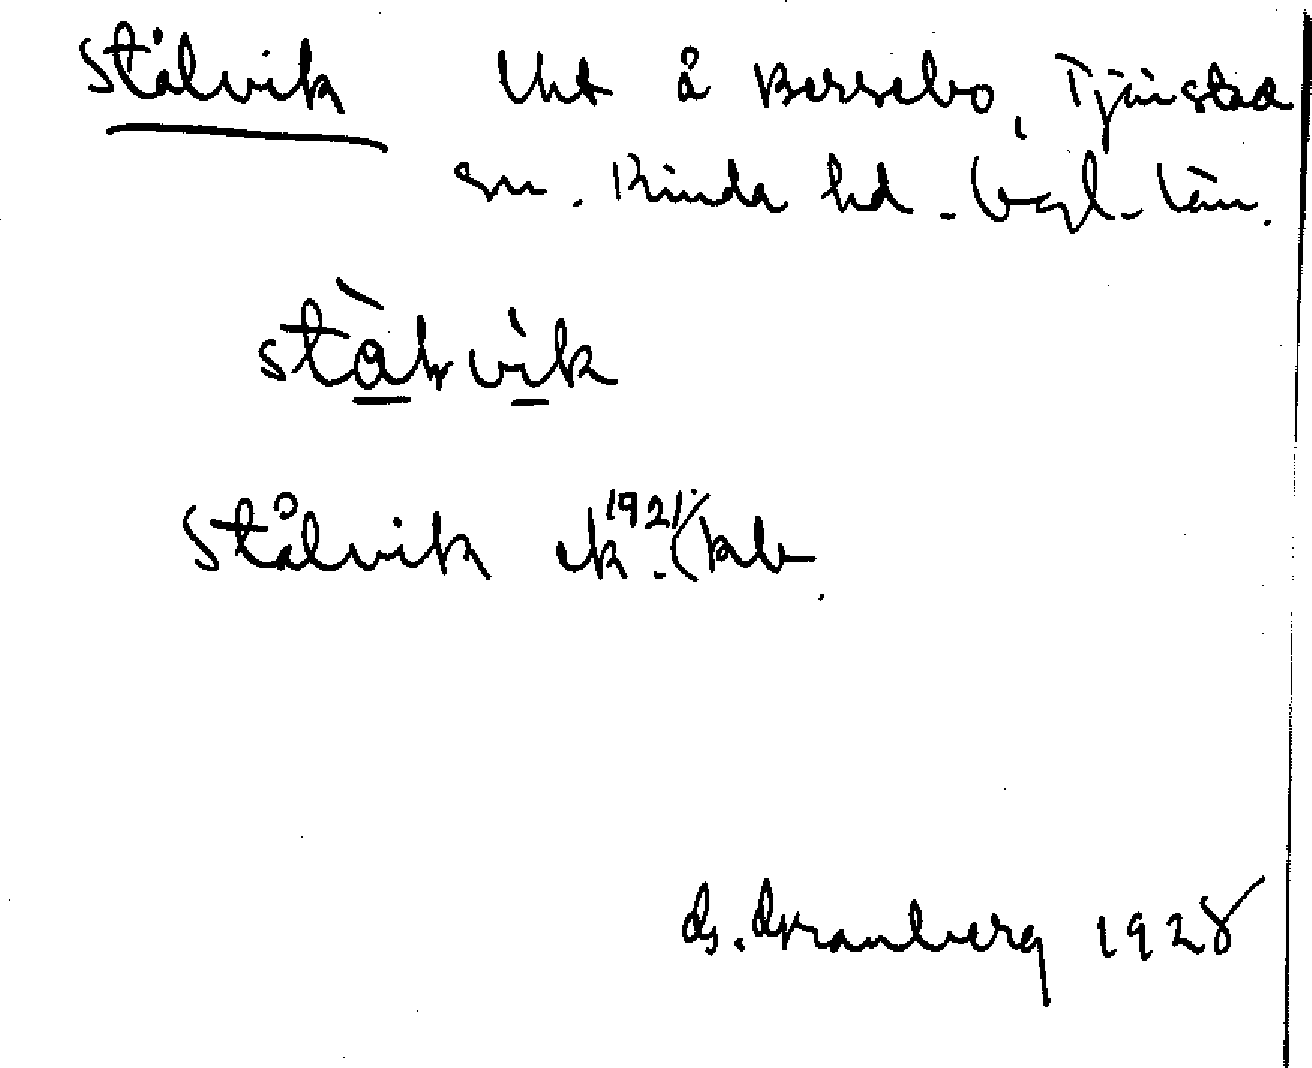 Stålvik Uht å Bersebo, Tjärstad
sn. Kinda hd. Ögl. län.
stålvik
Stålvik ek. 1921/kb.
G. Granberg 1928